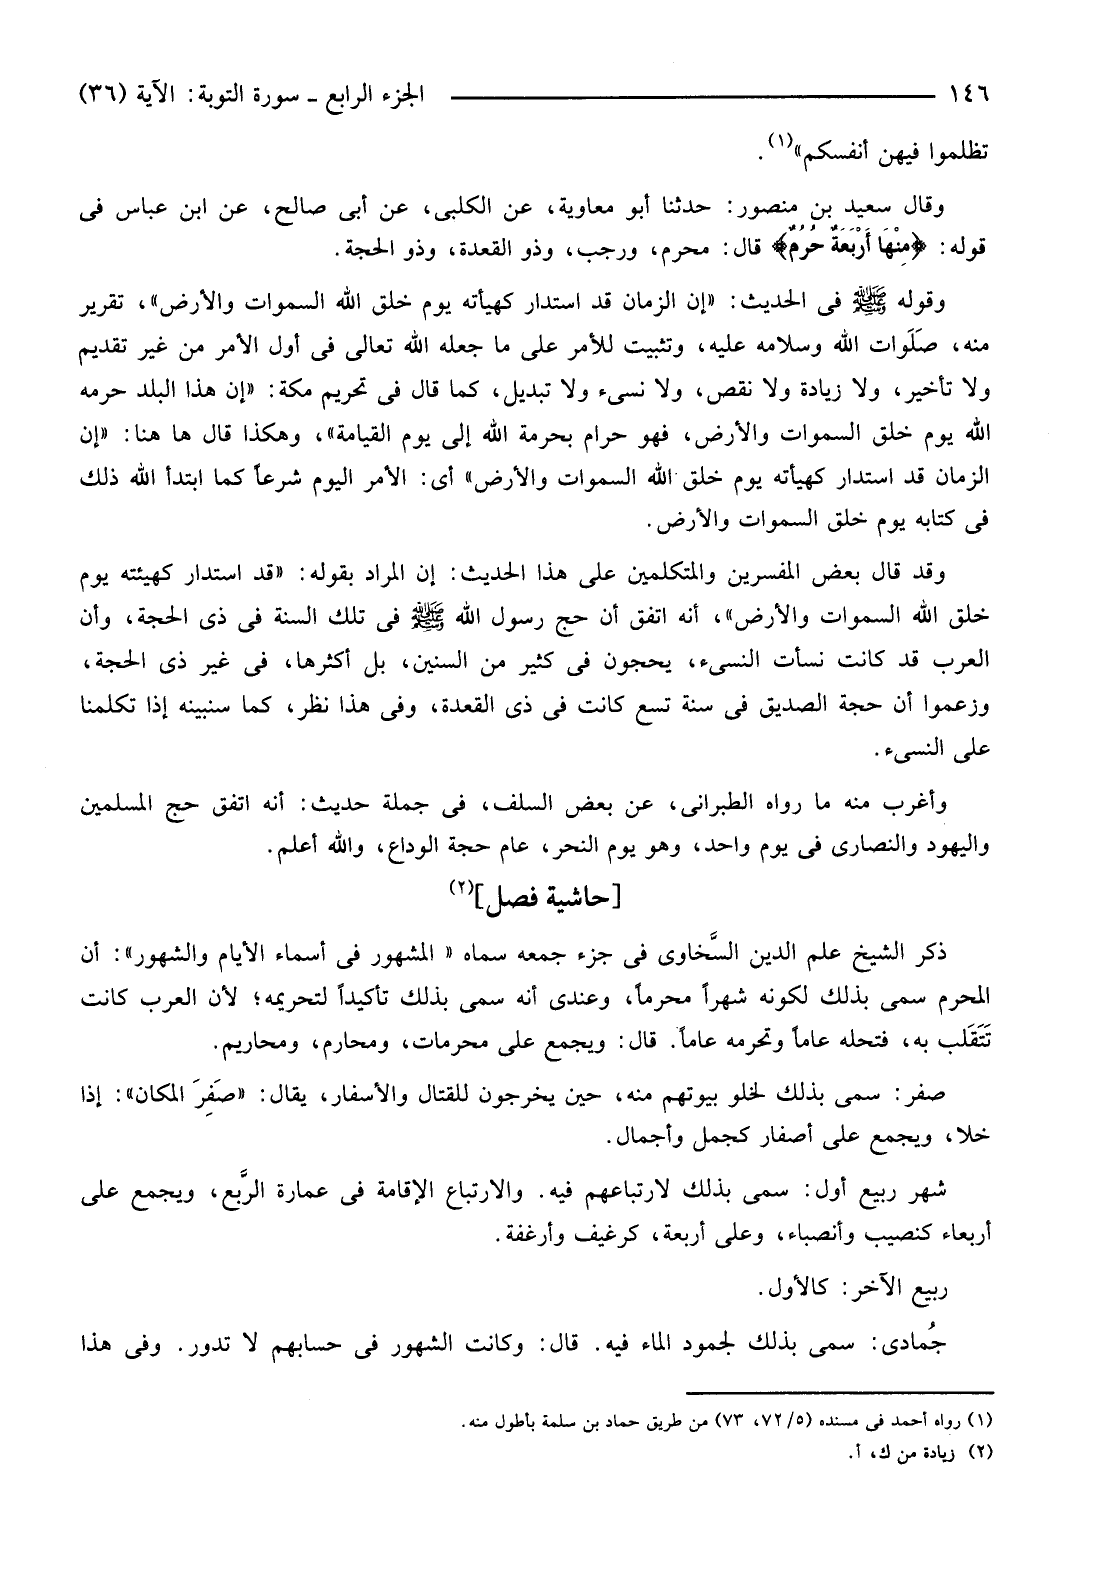 ١٤٦ ــــــــــــــ الجزء الرابع ـ سورة التوبة: الآية (٣٦)
تظلموا فيهن أنفسكم»(١).
وقال سعيد بن منصور: حدثنا أبو معاوية، عن الكلبى، عن أبى صالح، عن ابن عباس فى
قوله: ﴿مِنْهَا أَرْبَعَةٌ حُرُمٌ﴾ قال: محرم، ورجب، وذو القعدة، وذو الحجة.
وقوله ﷺ فى الحديث: «إن الزمان قد استدار كهيأته يوم خلق الله السموات والأرض»، تقرير
منه، صَلَوات الله وسلامه عليه، وتثبيت للأمر على ما جعله الله تعالى فى أول الأمر من غير تقديم
ولا تأخير، ولا زيادة ولا نقص، ولا نسىء ولا تبديل، كما قال فى تحريم مكة: «إن هذا البلد حرمه
الله يوم خلق السموات والأرض، فهو حرام بحرمة الله إلى يوم القيامة»، وهكذا قال ها هنا: «إن
الزمان قد استدار كهيأته يوم خلق الله السموات والأرض» أى: الأمر اليوم شرعاً كما ابتدأ الله ذلك
فى كتابه يوم خلق السموات والأرض.
وقد قال بعض المفسرين والمتكلمين على هذا الحديث: إن المراد بقوله: «قد استدار كهيئته يوم
خلق الله السموات والأرض»، أنه اتفق أن حج رسول الله ﷺ فى تلك السنة فى ذى الحجة، وأن
العرب قد كانت نسأت النسىء، يحجون فى كثير من السنين، بل أكثرها، فى غير ذى الحجة،
وزعموا أن حجة الصديق فى سنة تسع كانت فى ذى القعدة، وفى هذا نظر، كما سنبينه إذا تكلمنا
على النسىء.
وأغرب منه ما رواه الطبرانى، عن بعض السلف، فى جملة حديث: أنه اتفق حج المسلمين
واليهود والنصارى فى يوم واحد، وهو يوم النحر، عام حجة الوداع، والله أعلم.
[حاشية فصل](٢)
ذكر الشيخ علم الدين السَّخاوى فى جزء جمعه سماه « المشهور فى أسماء الأيام والشهور»: أن
المحرم سمى بذلك لكونه شهراً محرماً، وعندى أنه سمى بذلك تأكيداً لتحريمه؛ لأن العرب كانت
تَتَقَلب به، فتحله عاماً وتحرمه عاماً. قال: ويجمع على محرمات، ومحارم، ومحاريم.
صفر: سمى بذلك لخلو بيوتهم منه، حين يخرجون للقتال والأسفار، يقال: «صَفِرَ المكان»: إذا
خلا، ويجمع على أصفار كجمل وأجمال.
شهر ربيع أول: سمى بذلك لارتباعهم فيه. والارتباع الإقامة فى عمارة الرَّبع، ويجمع على
أربعاء كنصيب وأنصباء، وعلى أربعة، كرغيف وأرغفة.
ربيع الآخر: كالأول.
جُمادى: سمى بذلك لجمود الماء فيه. قال: وكانت الشهور فى حسابهم لا تدور. وفى هذا
(١) رواه أحمد فى مسنده (٥/ ٧٢، ٧٣) من طريق حماد بن سلمة بأطول منه.
(٢) زيادة من ك، أ.